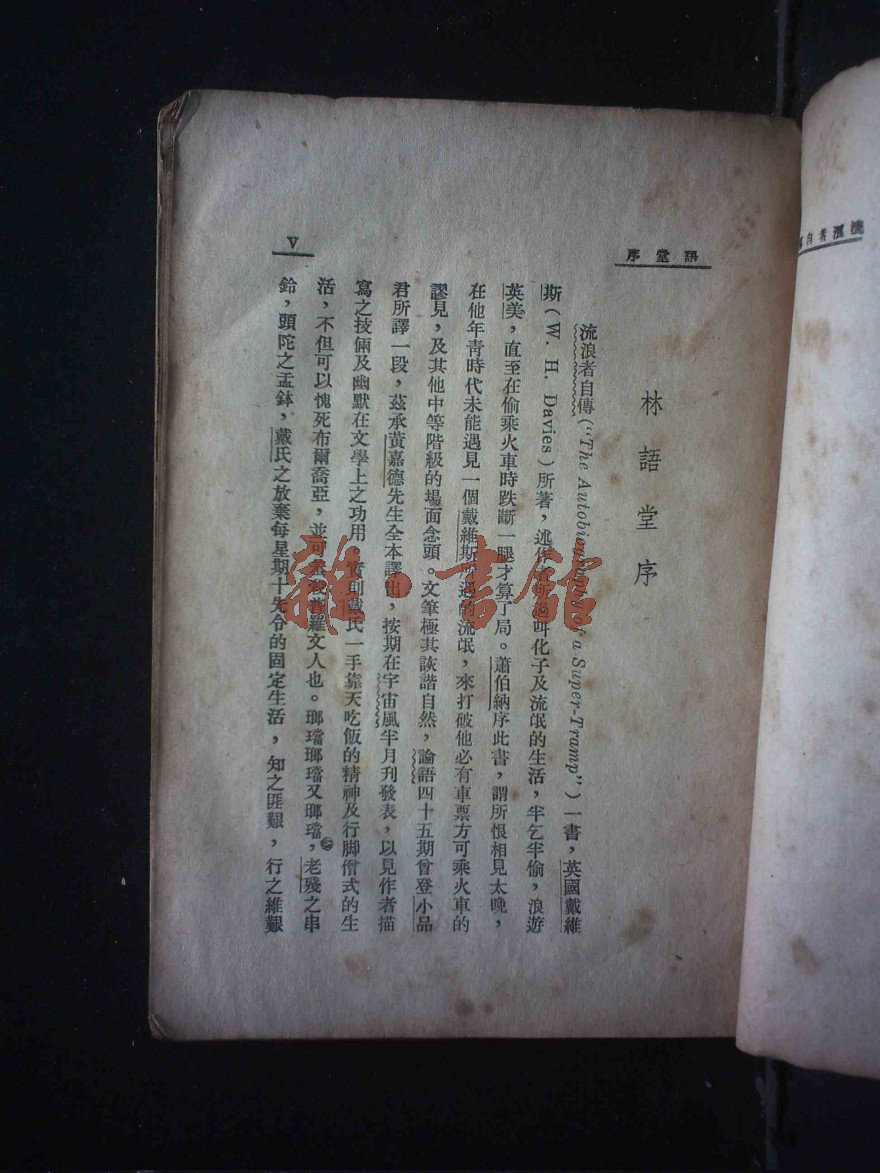 語堂序
林語堂序
流浪者自傳（"The Autobiography of a Super-Tramp"）一書，英國戴維
斯（W. H. Davies）所著，述作者所過叫化子及流氓的生活，半乞半偷，浪遊
英美，直至在偷乘火車時跌斷一腿才算了局。蕭伯納序此書，謂所恨相見太晚，
在他年靑時代未能遇見一個戴維斯所過的流氓，來打破他必有車票方可乘火車的
謬見，及其他中等階級的場面念頭。文筆極其詼諧自然，論語四十五期曾登小品
君所譯一段，茲承黃嘉德先生全本譯出，按期在宇宙風半月刊發表，以見作者描
寫之技倆及幽默在文學上之功用。實則戴氏一手靠天吃飯的精神及行脚僧式的生
活，不但可以愧死布爾喬亞，並可羅文人也。瑯璫瑯璫又瑯璫，老殘之串
鈴，頭陀之盂鉢，戴氏之放棄每星期十先令的固定生活，知之匪艱，行之維艱
V
流浪者自
雜·書館